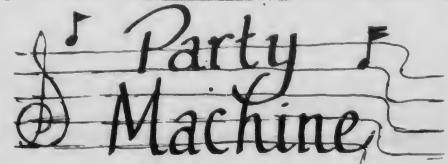 Party
Machine